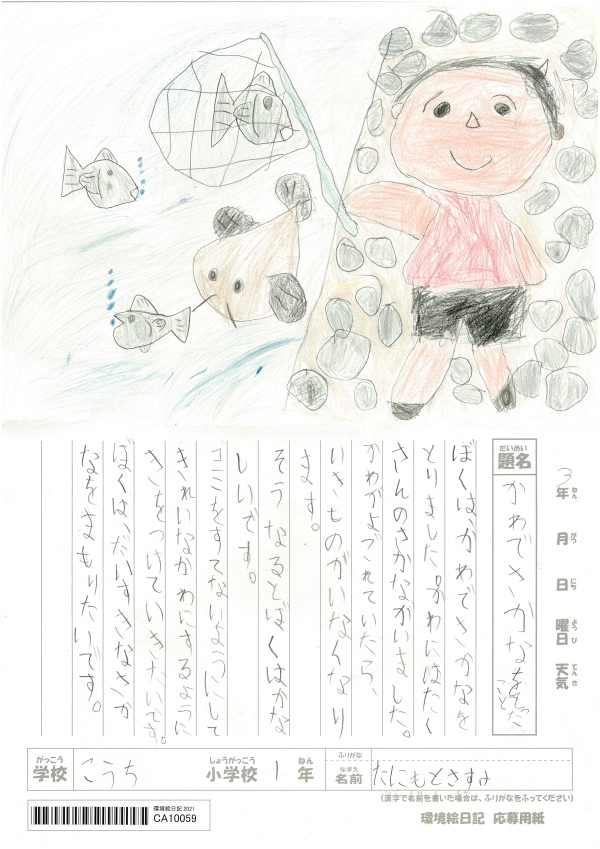 3年 月 日 曜日 天気
ねん がつ にち ようび てんき
だいめい
題名
かわでさかなを
こと
ぼくは、かわでさかなを
とりました。かわにはたく
さんのさかながいました。
かわがよごれていたら、
いきものがいなくなり
ます。
そうなるとぼくはかな
しいです。
ゴミをすてないようにして
きれいなかわにするように
きをつけていきたいです。
ぼくは、だいすきなさか
なをまもりたいです。
がっこう しょうがっこう ねん ふりがな なまえ
学校 こうち 小学校 1年 名前 たにもとさすみ
(漢字で名前を書いた場合は、ふりがなをふってください)
環境絵日記 2021
CA10059
環境絵日記 応募用紙